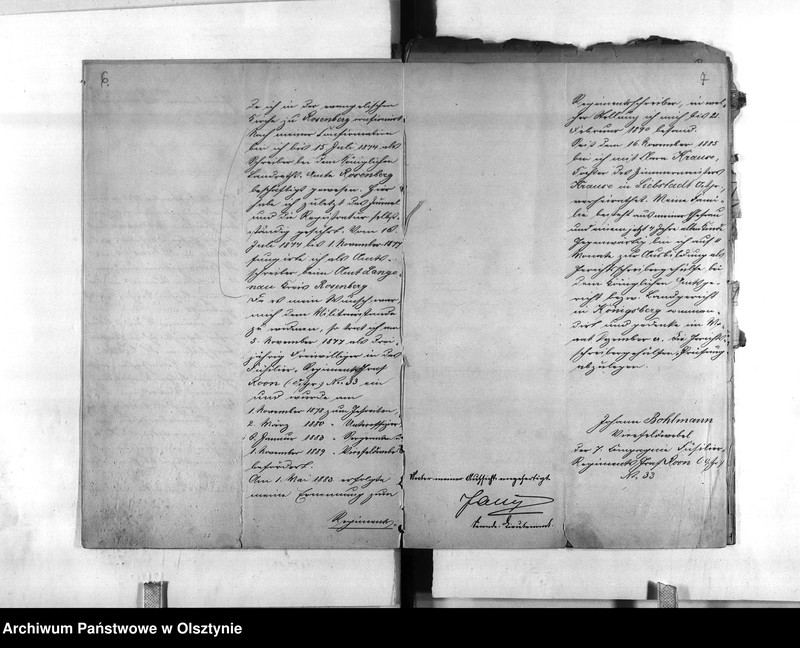 6.
da ich in der evangelischen
Kirche zu Rosenberg confirmirt.
Nach meiner Confirmation
bin ich bis 15. Juli 1874 als
Schreiber bei dem Königlichen
Landraths-Amte Rosenberg
beschäftigt gewesen. Hier
habe ich zuletzt das Journal
und die Registratur selbst-
ständig geführt. Vom 16.
Juli 1874 bis 1. November 1877
fungirte ich als Amts-
schreiber beim Amt Lange-
nau Kreis Rosenberg
Da es mein Wunsch war
mich dem Militairstande
zu widmen, so trat ich am
5. November 1877 als Drei-
jährig Freiwilliger in das
Füsilier-Regiment Graf
Roon (Ostpr.) No. 33 ein
und wurde am
1. November 1878 zum Gefreiten,
2. März 1880 " Unteroffizier,
6. Januar 1883 " Sergeanten
1. November 1889 " Vicefeldwebel
befördert.
Am 1. Mai 1883 erfolgte
meine Ernennung zum
Regiments-
Unter meiner Aufsicht angefertigt.
Seconde-Lieutenant.
7
Regimentsschreiber, in wel-
cher Stellung ich mich bis 21.
Februar 1890 befand.
Seit dem 16. November 1885
bin ich mit Clara Krause,
Tochter des Zimmermeisters
Krause in Liebstadt Ostpr.
verheirathet. Meine Fami-
lie besteht aus meiner Ehefrau
und einem jetzt 4 Jahre alten Kinde
Gegenwärtig bin ich auf
Monate zur Ausbildung als
Gerichtsschreibergehülfe bei
dem Königlichen Amtsge-
richt bezw. Landgericht
in Königsberg comman-
dirt und gedenke im Mo-
nat Dezember cr. die Gerichts-
schreibergehülfen-Prüfung
abzulegen.
Johann Bohlmann
Vicefeldwebel
der 7. Compagnie Füsilier-
Regiments Graf Roon (Ostpr.)
No. 33
Archiwum Państwowe w Olsztynie